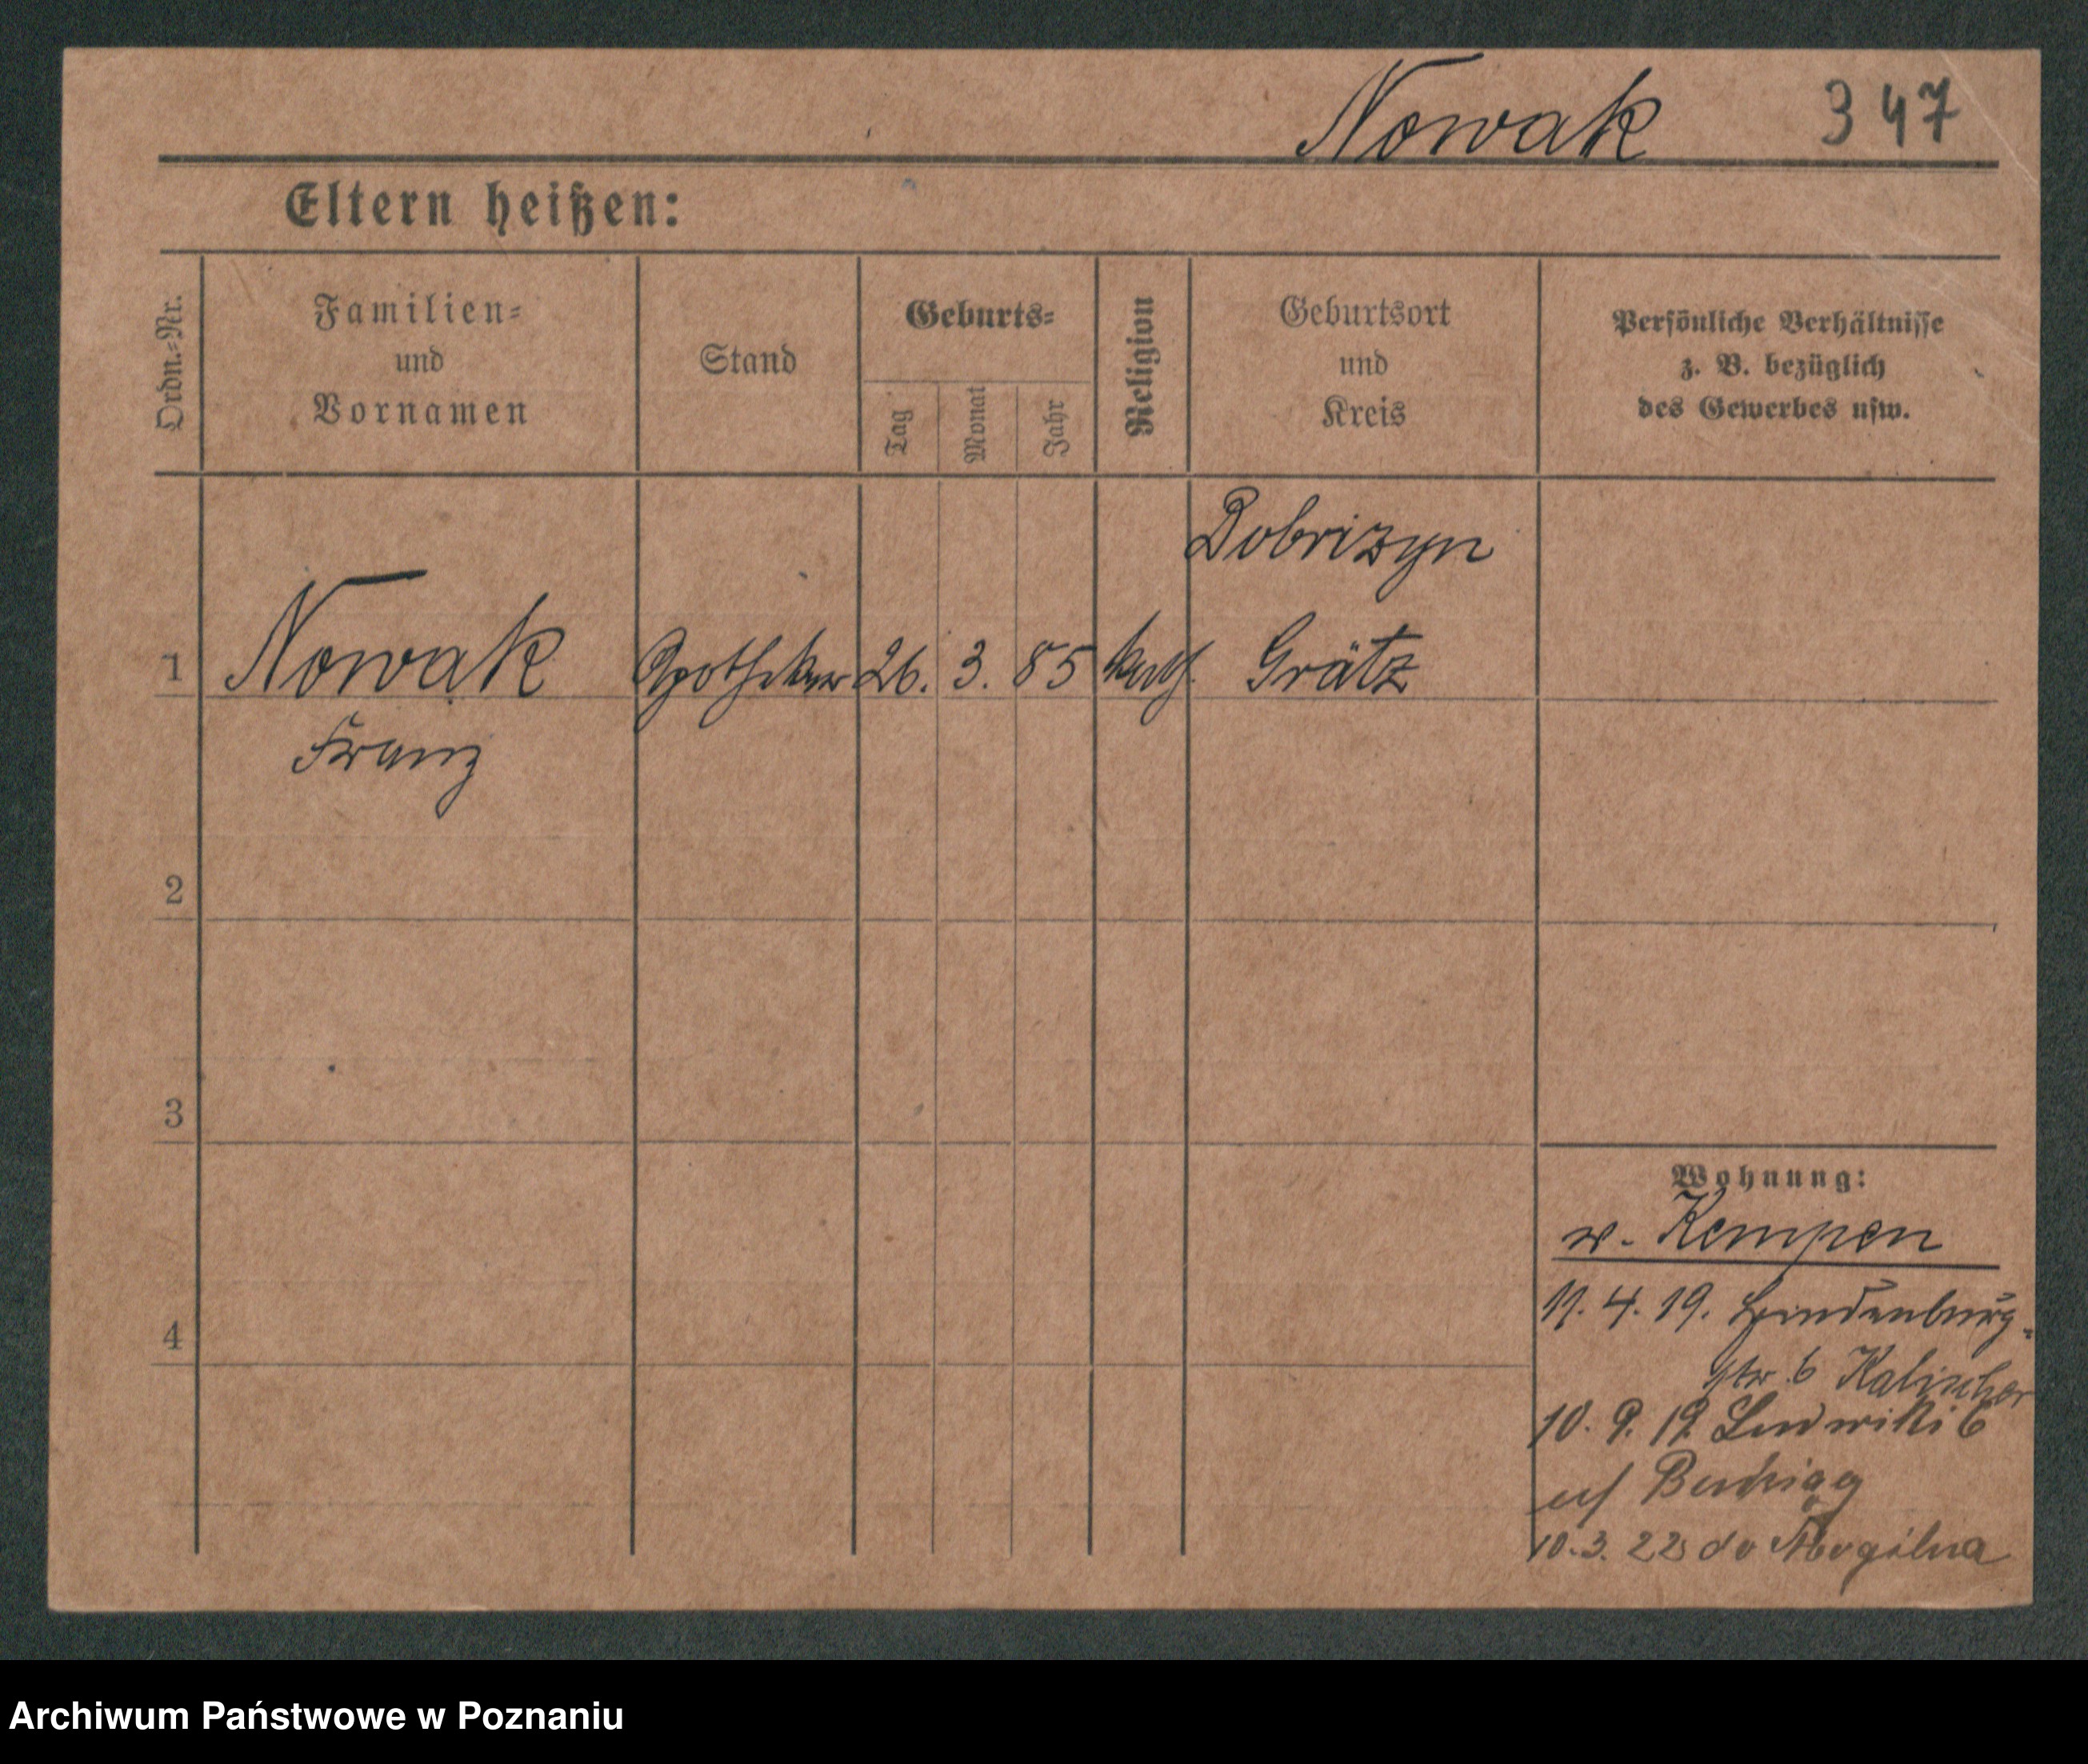 Nowak 347
Eltern heißen:
Ordn.-Nr.
Familien-
und
Vornamen
Stand
Geburts-
Tag
Monat
Jahr
Religion
Geburtsort
und
Kreis
Persönliche Verhältnisse
z. B. bezüglich
des Gewerbes usw.
Dobrizyn
1 Nowak Apotheker 26. 3. 85 kath. Grätz
Franz
2
3
4
Wohnung:
v. Kempen
11. 4. 19. Hindenburg-
str. 6 Kalischer
10. 9. 19. Ludwiki 6
10. 3. 22 do Mogilna
Archiwum Państwowe w Poznaniu